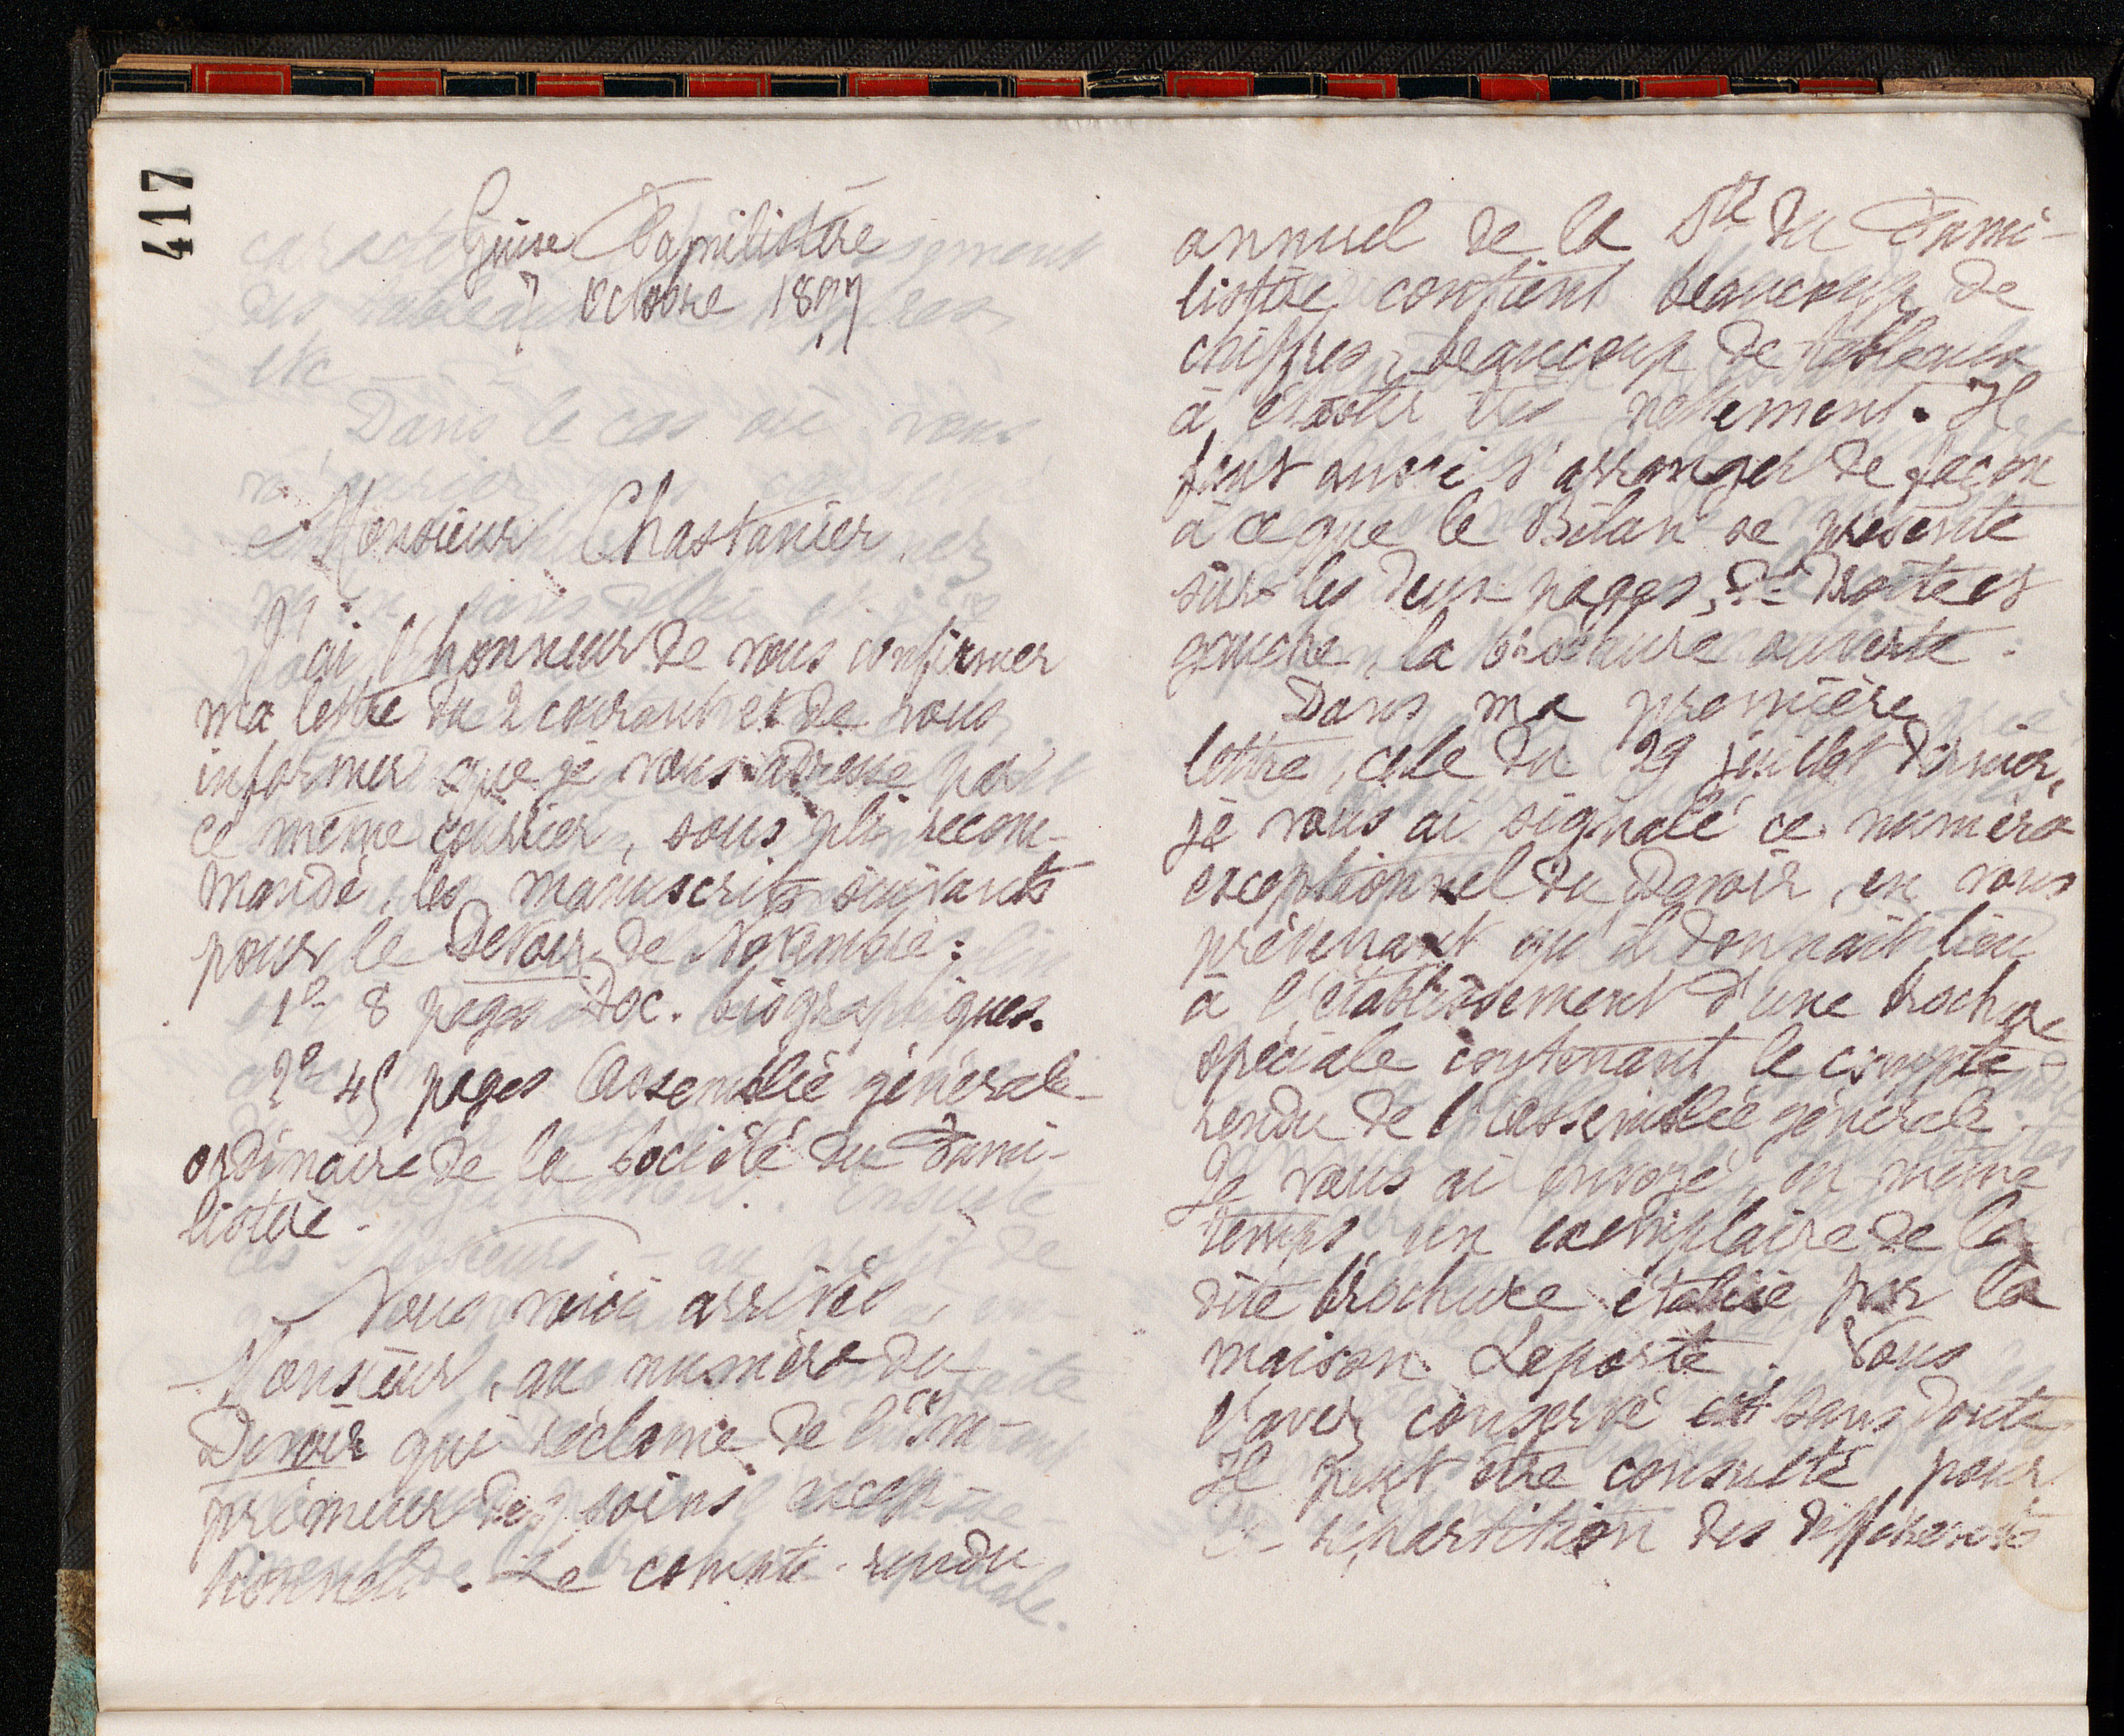 417
Guise Familistère
7 Octobre 1897
Monsieur Chastanier,
J'ai l'honneur de vous confirmer
ma lettre du 2 courant et de vous
informer que je vous adresse par
ce même courrier, sous pli recom-
mandé, les manuscrits suivants
pour le Devoir de Novembre :
1º 8 pages Doc. biographiques.
2º 45 pages Assemblée générale
ordinaire de la Société du Fami-
listère.
Nous voici arrivés,
Monsieur, au numéro du
Devoir qui réclame de l'im-
primeur des soins excep-
tionnels. Le compte-rendu
annuel de la Sté du Fami-
listère contient beaucoup de
chiffres, beaucoup de tableaux
à établir très nettement. Il
faut aussi s'arranger de façon
à ce que le Bilan se présente
sur les deux pages, de droite et
gauche, la brochure ouverte.
Dans ma première
lettre, celle du 29 juillet dernier,
je vous ai signalé ce numéro
exceptionnel du Devoir, en vous
prévenant qu'il donnait lieu
à l'établissement d'une brochure
spéciale contenant le compte-
rendu de l'assemblée générale.
Je vous ai envoyé, en même
temps, un exemplaire de la
dite brochure établie par la
maison Leporte. Vous
l'avez conservé sans doute
Il peut être consulté pour
la répartition des différents